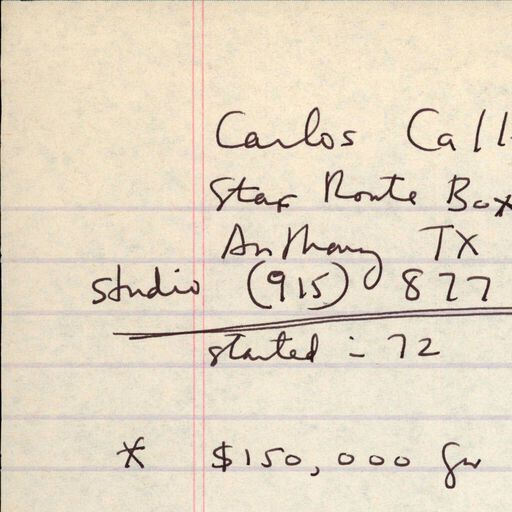 Carlos Call
Star Route Box
Anthony TX
studio (915) 877
started - 72
* $150,000 for